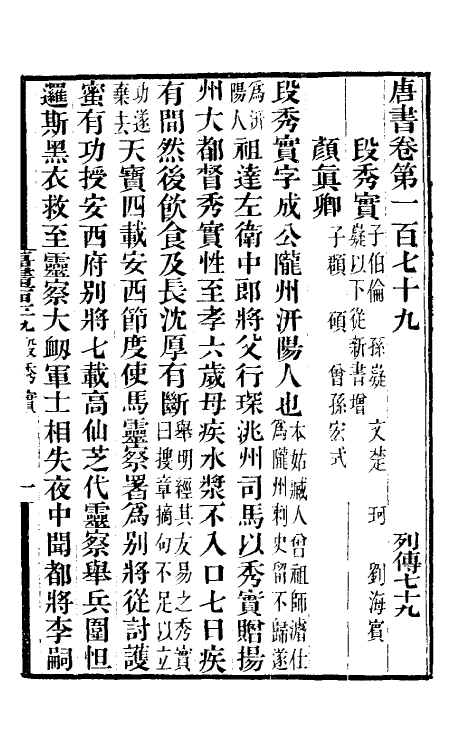 唐書卷第一百七十九 列傳七十九
段秀實 子伯倫 孫嶷 文楚 珂 劉海賓
嶷以下從新書增
顏眞卿 子頵 碩 曾孫宏式
段秀實字成公隴州汧陽人也 本姑臧人曾祖師濬仕
爲隴州刺史留不歸遂
爲汧
陽人
祖達左衛中郎將父行琛洮州司馬以秀實贈揚
州大都督秀實性至孝六歲母疾水漿不入口七日疾
有間然後飲食及長沈厚有斷 舉明經其友易之秀實
曰搜章摘句不足以立
功遂
棄去
天寶四載安西節度使馬靈察署爲別將從討護
蜜有功授安西府別將七載高仙芝代靈察舉兵圍怛
邏斯黑衣救至靈察大衂軍士相失夜中聞都將李嗣
段秀實 一